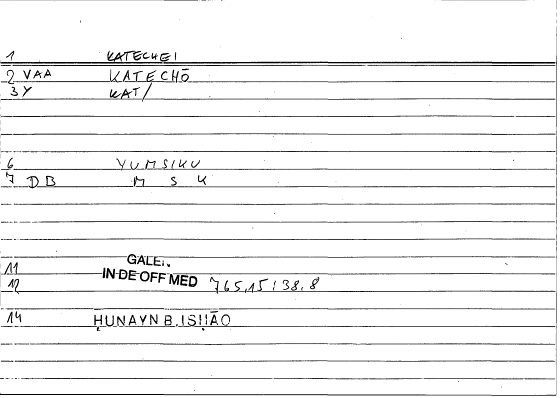 1 KATECHEI
2 VAA KATECHŌ
3 Y KAT/
6 YUMSIKU
7 DB M S K
11 GALEN.
12 IN DE OFF MED 765,15 : 38.8
14 ḤUNAYN B. ISḤĀQ